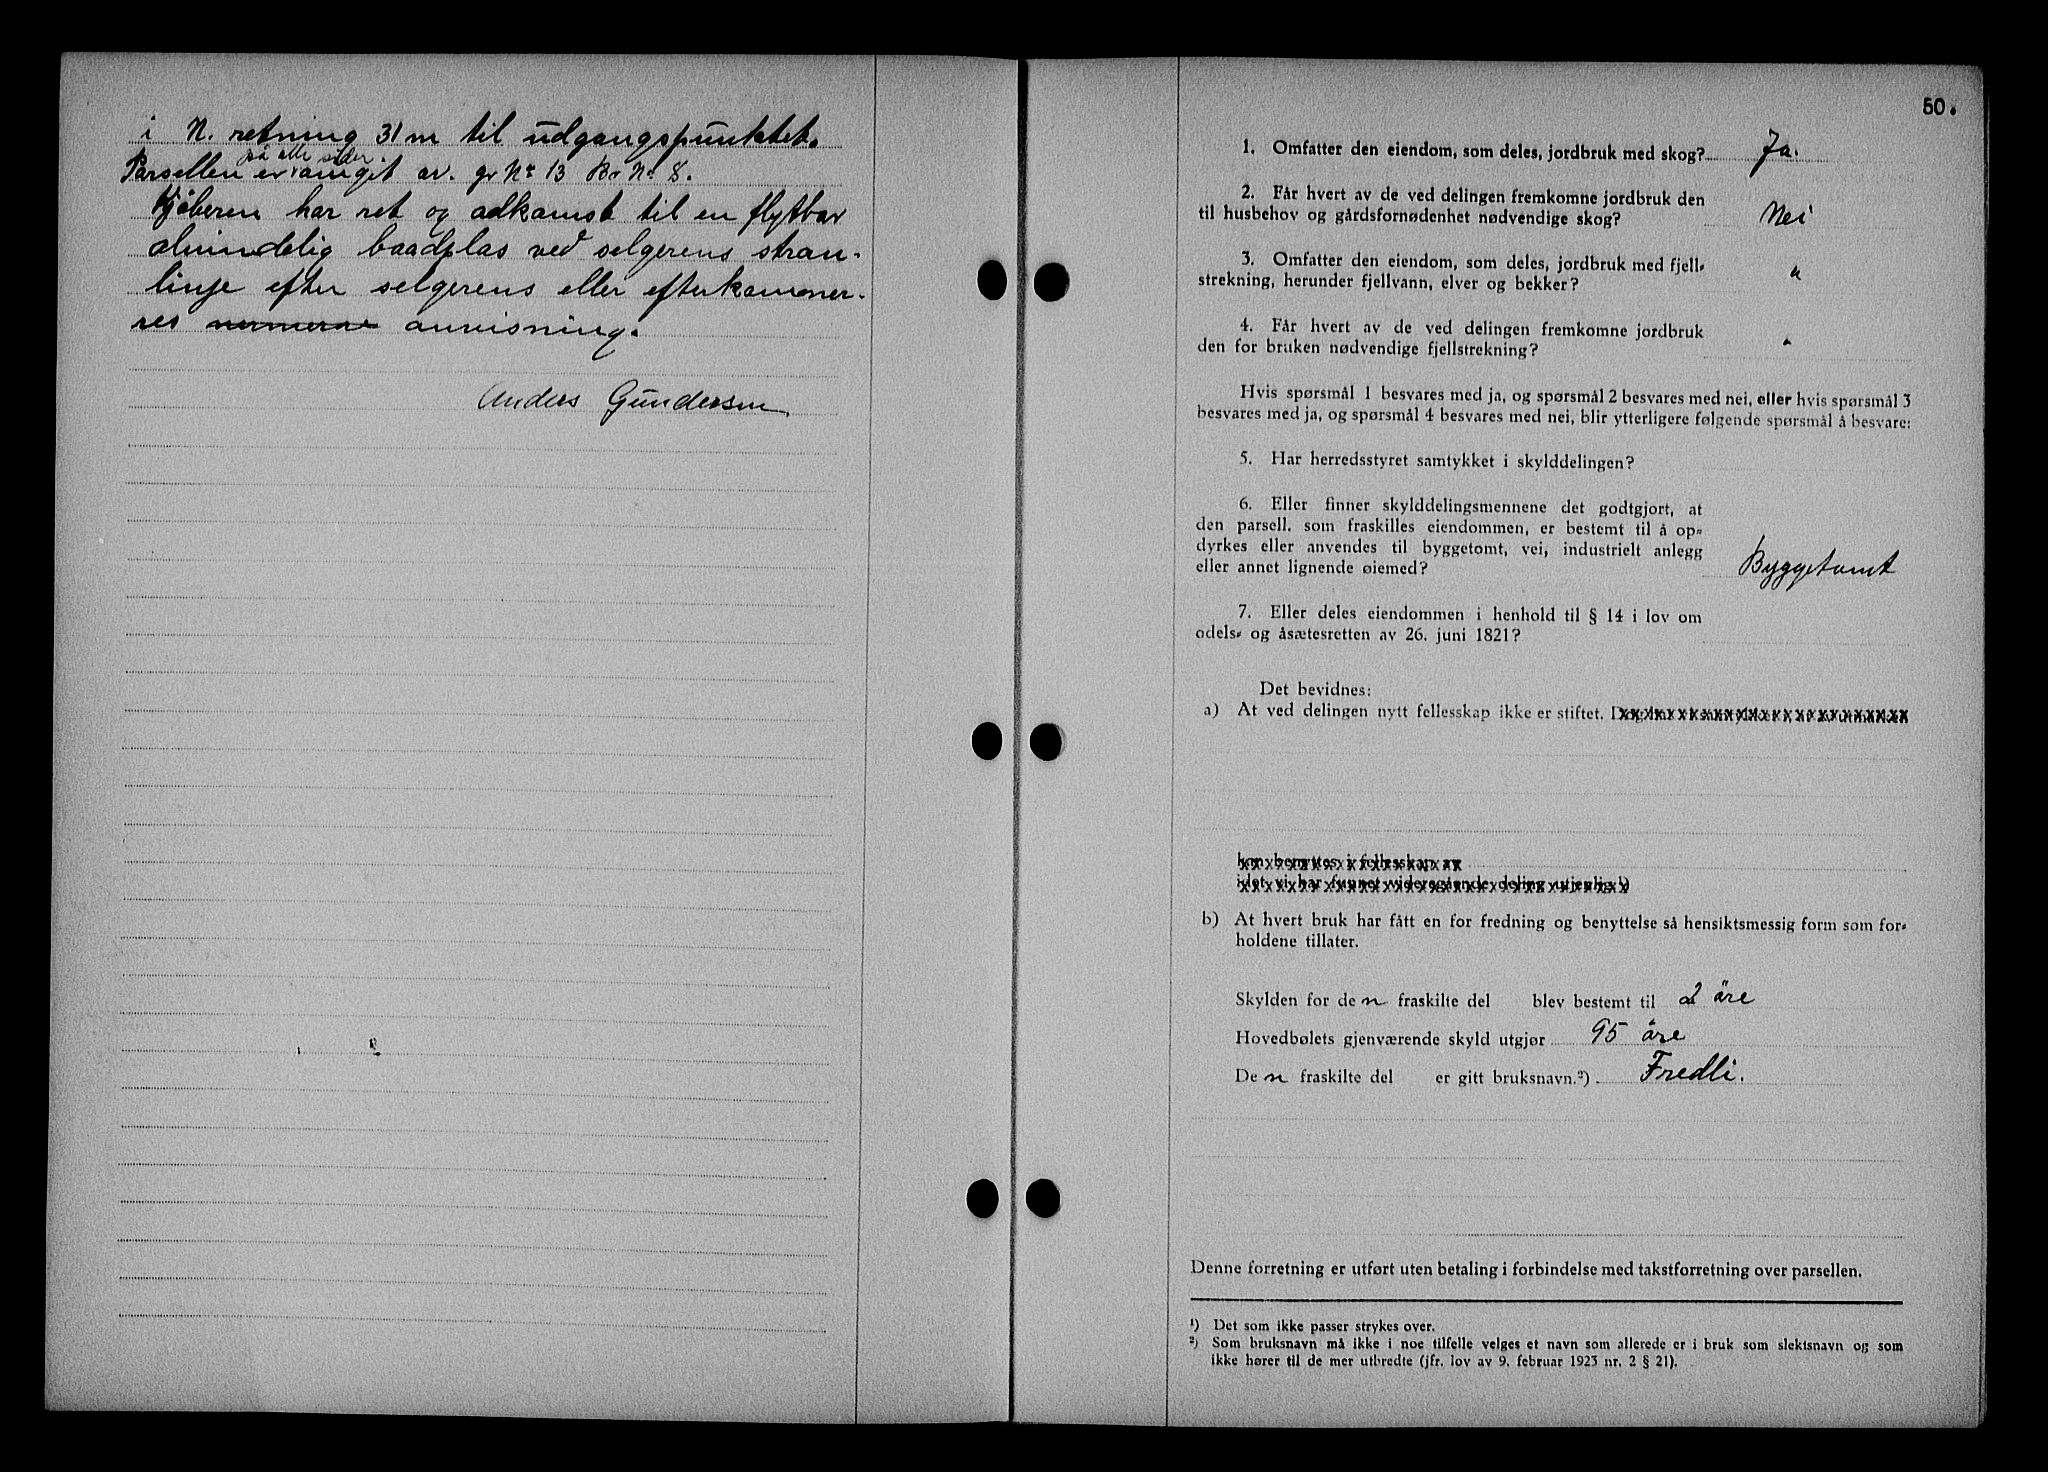 i N. retning 31 m til udgangspunktet.
på alle sider
Parsellen er omget av. gr No 13 Br No 8.
Kjøberen har ret og adkomst til en flytbar
almindelig baadplas ved selgerens stran-
linje efter selgerens eller efterkommer-
res anvisning.
Anders Gundersen
50.
1. Omfatter den eiendom, som deles, jordbruk med skog? Ja.
2. Får hvert av de ved delingen fremkomne jordbruk den
til husbehov og gårdsfornødenhet nødvendige skog? Nei
3. Omfatter den eiendom, som deles, jordbruk med fjell-
strekning, herunder fjellvann, elver og bekker? "
4. Får hvert av de ved delingen fremkomne jordbruk
den for bruken nødvendige fjellstrekning? "
Hvis spørsmål 1 besvares med ja, og spørsmål 2 besvares med nei, eller hvis spørsmål 3
besvares med ja, og spørsmål 4 besvares med nei, blir ytterligere følgende spørsmål å besvare:
5. Har herredsstyret samtykket i skylddelingen?
6. Eller finner skylddelingsmennene det godtgjort, at
den parsell, som fraskilles eiendommen, er bestemt til å op-
dyrkes eller anvendes til byggetomt, vei, industrielt anlegg
eller annet lignende øiemed? Byggetomt
7. Eller deles eiendommen i henhold til § 14 i lov om
odels- og åsætesretten av 26. juni 1821?
Det bevidnes:
a) At ved delingen nytt fellesskap ikke er stiftet.
kan benyttes i fellesskap av
idet vi har funnet videregående deling utjenlig.¹)
b) At hvert bruk har fått en for fredning og benyttelse så hensiktsmessig form som for-
holdene tillater.
Skylden for den fraskilte del blev bestemt til 2 øre
Hovedbølets gjenværende skyld utgjør 95 øre
Den fraskilte del er gitt bruksnavn.²) Fredli.
Denne forretning er utført uten betaling i forbindelse med takstforretning over parsellen.
¹) Det som ikke passer strykes over.
²) Som bruksnavn må ikke i noe tilfelle velges et navn som allerede er i bruk som slektsnavn og som
ikke hører til de mer utbredte (jfr. lov av 9. februar 1923 nr. 2 § 21).